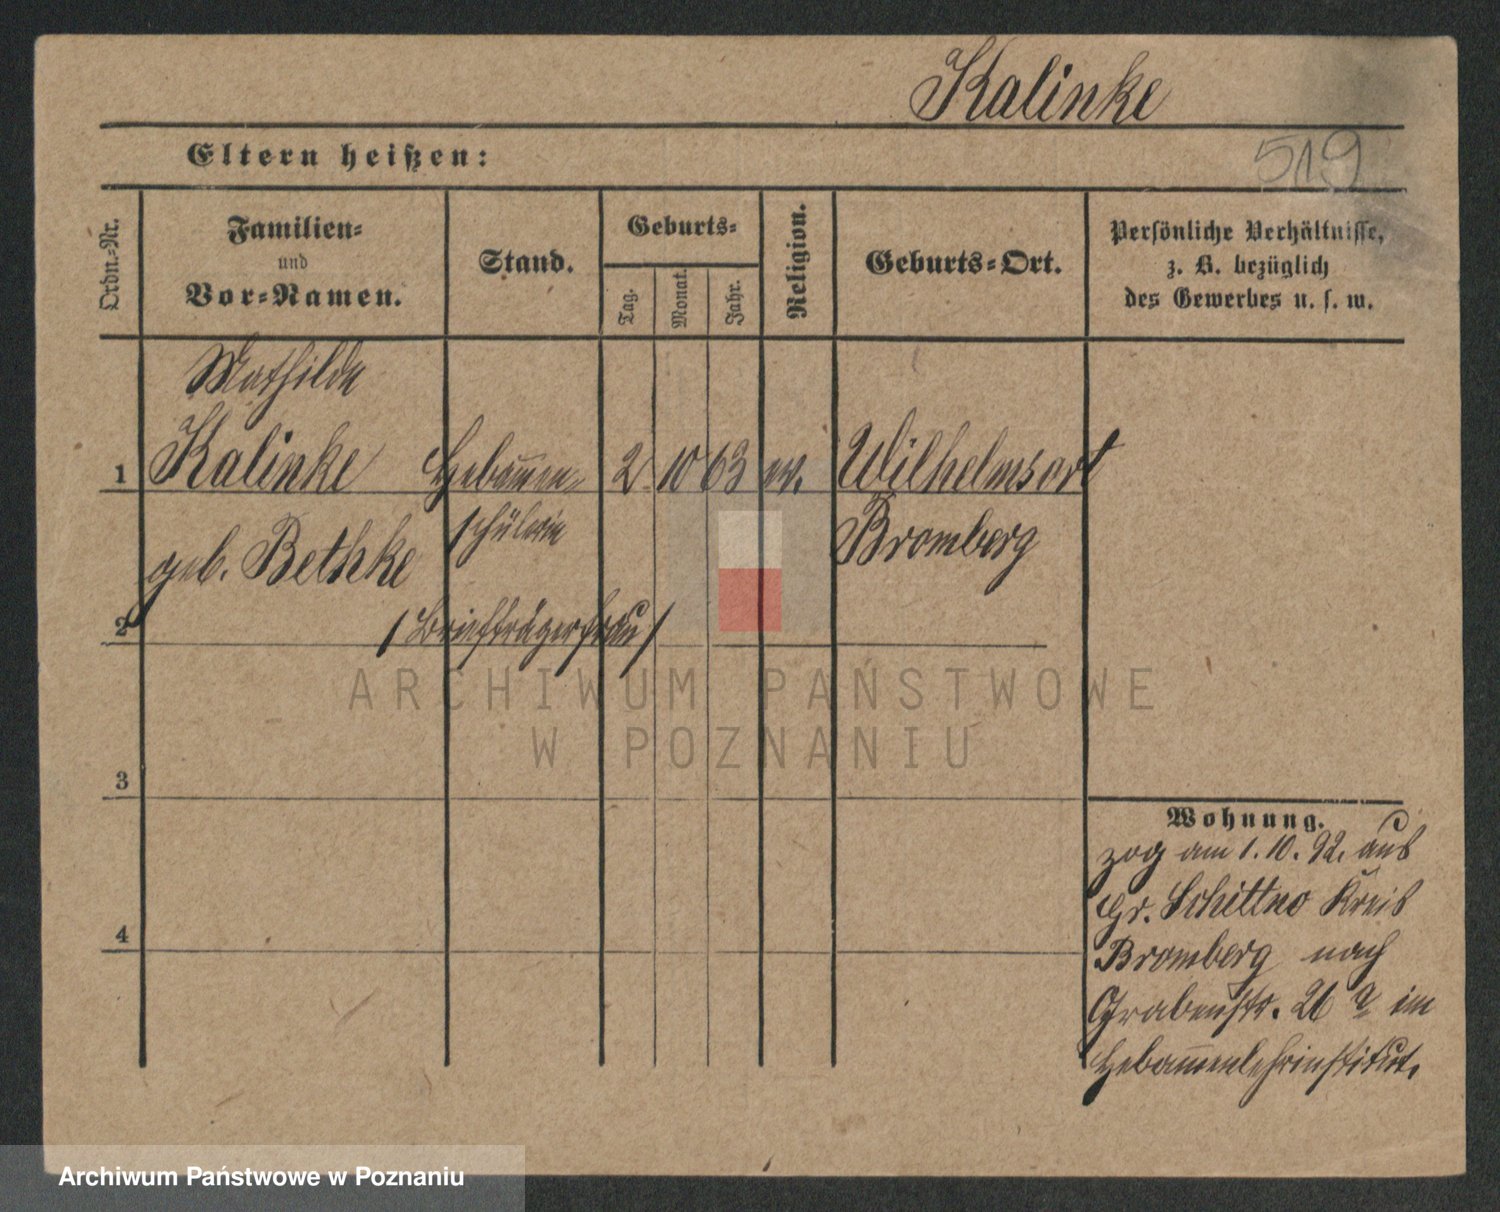 Kalinke
519
Eltern heißen:
Ordn.-Nr.
Familien-
und
Vor-Namen.
Stand.
Geburts-
Tag.
Monat.
Jahr.
Religion.
Geburts-Ort.
Persönliche Verhältnisse,
z. B. bezüglich
des Gewerbes u. s. w.
Mathilde
1 Kalinke Hebam̅en- 2 10 63 ev. Wilhelmsort
schülerin Bromberg
geb. Bethke
2 (Briefträgerfrau)
ARCHIWUM PAŃSTWOWE
W POZNANIU
3
Wohnung.
zog am 1.10.92. aus
Gr. Schittno Kreis
4
Bromberg nach
Grabenstr. 26 a im
Hebam̅enlehrinstitut.
Archiwum Państwowe w Poznaniu